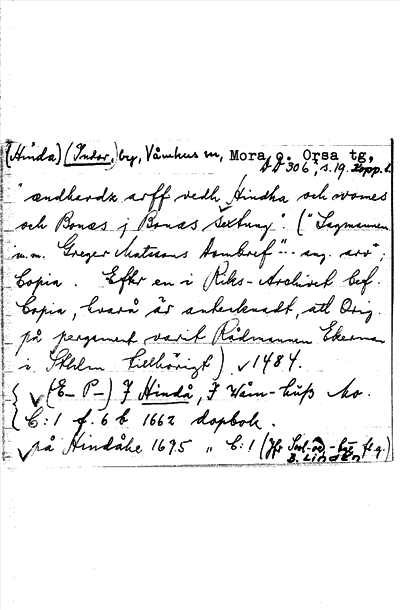 (Hinda) (Indor,) by, Våmhus sn, Mora o. Orsa tg,
DD 306, s. 19. Kopp. l.
"andhardz arff vedh Hindha och
och Bonæs j Bonæs sextung". ("Lagmannen
m.m. Greger Matssons dombref" ang. arv";
Copia. Efter en i Riks-Archivet bef.
Copia, hvarå är antecknadt, att Orig.
på pergament varit Rådmannen Ekerman
i Sthlm tillhörigt) √ 1484.
{ √ (E_ P_) J Hindå, J Wåm-huss Mo.
C:1 f. 6 b 1662 dopbok.
√ på Hindåhe 1695 " C:1 (Jfr fl. g.)
B. Lindén